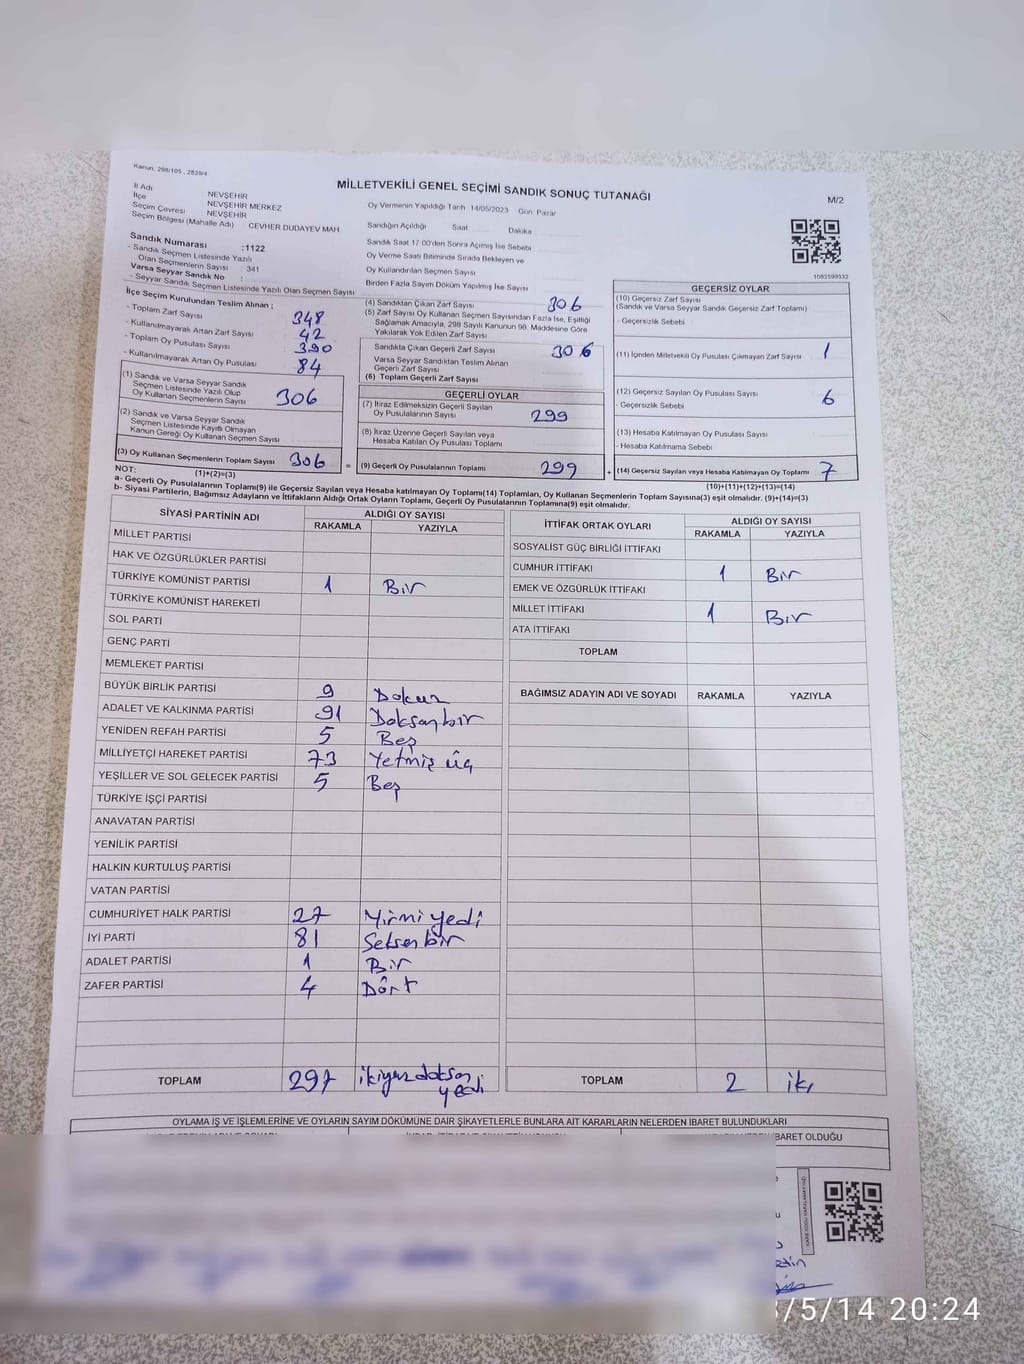 Kanun, 298/105 , 2839/4
MİLLETVEKİLİ GENEL SEÇİMİ SANDIK SONUÇ TUTANAĞI
M/2
İl Adı NEVŞEHİR
İlçe NEVŞEHİR MERKEZ
Seçim Çevresi NEVŞEHİR
Seçim Bölgesi (Mahalle Adı) CEVHER DUDAYEV MAH
Sandık Numarası :1122
- Sandık Seçmen Listesinde Yazılı
Olan Seçmenlerin Sayısı 341
Varsa Seyyar Sandık No :
- Seyyar Sandık Seçmen Listesinde Yazılı Olan Seçmen Sayısı
Oy Vermenin Yapıldığı Tarih 14/05/2023 Gün Pazar
Sandığın Açıldığı Saat Dakika
Sandık Saat 17.00'den Sonra Açılmış İse Sebebi
Oy Verme Saati Bitiminde Sırada Bekleyen ve
Oy Kullandırılan Seçmen Sayısı
Birden Fazla Sayım Döküm Yapılmış İse Sayısı
1083599332
İlçe Seçim Kurulundan Teslim Alınan ;
- Toplam Zarf Sayısı 348
- Kullanılmayarak Artan Zarf Sayısı 42
- Toplam Oy Pusulası Sayısı 390
- Kullanılmayarak Artan Oy Pusulası 84
(1) Sandık ve Varsa Seyyar Sandık
Seçmen Listesinde Yazılı Olup
Oy Kullanan Seçmenlerin Sayısı 306
(2) Sandık ve Varsa Seyyar Sandık
Seçmen Listesinde Kayıtlı Olmayan
Kanun Gereği Oy Kullanan Seçmen Sayısı
(3) Oy Kullanan Seçmenlerin Toplam Sayısı 306 =
(1)+(2)=(3)
(4) Sandıktan Çıkan Zarf Sayısı 306
(5) Zarf Sayısı Oy Kullanan Seçmen Sayısından Fazla İse, Eşitliği
Sağlamak Amacıyla, 298 Sayılı Kanunun 98. Maddesine Göre
Yakılarak Yok Edilen Zarf Sayısı
Sandıkta Çıkan Geçerli Zarf Sayısı 306
Varsa Seyyar Sandıktan Teslim Alınan
Geçerli Zarf Sayısı
(6) Toplam Geçerli Zarf Sayısı
GEÇERLİ OYLAR
(7) İtiraz Edilmeksizin Geçerli Sayılan
Oy Pusulalarının Sayısı 299
(8) İtiraz Üzerine Geçerli Sayılan veya
Hesaba Katılan Oy Pusulası Toplamı
(9) Geçerli Oy Pusulalarının Toplamı 299 +
GEÇERSİZ OYLAR
(10) Geçersiz Zarf Sayısı
(Sandık ve Varsa Seyyar Sandık Geçersiz Zarf Toplamı)
- Geçersizlik Sebebi
(11) İçinden Milletvekili Oy Pusulası Çıkmayan Zarf Sayısı 1
(12) Geçersiz Sayılan Oy Pusulası Sayısı 6
- Geçersizlik Sebebi
(13) Hesaba Katılmayan Oy Pusulası Sayısı
- Hesaba Katılmama Sebebi
(14) Geçersiz Sayılan veya Hesaba Katılmayan Oy Toplamı 7
(10)+(11)+(12)+(13)=(14)
NOT:
a- Geçerli Oy Pusulalarının Toplamı(9) ile Geçersiz Sayılan veya Hesaba katılmayan Oy Toplamı(14) Toplamları, Oy Kullanan Seçmenlerin Toplam Sayısına(3) eşit olmalıdır. (9)+(14)=(3)
b- Siyasi Partilerin, Bağımsız Adayların ve İttifakların Aldığı Ortak Oyların Toplamı, Geçerli Oy Pusulalarının Toplamına(9) eşit olmalıdır.
SİYASİ PARTİNİN ADI ALDIĞI OY SAYISI
RAKAMLA YAZIYLA
MİLLET PARTİSİ
HAK VE ÖZGÜRLÜKLER PARTİSİ
TÜRKİYE KOMÜNİST PARTİSİ 1 Bir
TÜRKİYE KOMÜNİST HAREKETİ
SOL PARTİ
GENÇ PARTİ
MEMLEKET PARTİSİ
BÜYÜK BİRLİK PARTİSİ 9 Dokuz
ADALET VE KALKINMA PARTİSİ 91 Doksan bir
YENİDEN REFAH PARTİSİ 5 Beş
MİLLİYETÇİ HAREKET PARTİSİ 73 Yetmiş üç
YEŞİLLER VE SOL GELECEK PARTİSİ 5 Beş
TÜRKİYE İŞÇİ PARTİSİ
ANAVATAN PARTİSİ
YENİLİK PARTİSİ
HALKIN KURTULUŞ PARTİSİ
VATAN PARTİSİ
CUMHURİYET HALK PARTİSİ 27 Yirmi yedi
İYİ PARTİ 81 Seksen bir
ADALET PARTİSİ 1 Bir
ZAFER PARTİSİ 4 Dört
TOPLAM 297 ikiyüz doksan
yedi
İTTİFAK ORTAK OYLARI ALDIĞI OY SAYISI
RAKAMLA YAZIYLA
SOSYALİST GÜÇ BİRLİĞİ İTTİFAKI
CUMHUR İTTİFAKI 1 Bir
EMEK VE ÖZGÜRLÜK İTTİFAKI
MİLLET İTTİFAKI 1 Bir
ATA İTTİFAKI
TOPLAM
BAĞIMSIZ ADAYIN ADI VE SOYADI RAKAMLA YAZIYLA
TOPLAM 2 iki
OYLAMA İŞ VE İŞLEMLERİNE VE OYLARIN SAYIM DÖKÜMÜNE DAİR ŞİKAYETLERLE BUNLARA AİT KARARLARIN NELERDEN İBARET BULUNDUKLARI
İBARET OLDUĞU
/5/14 20:24